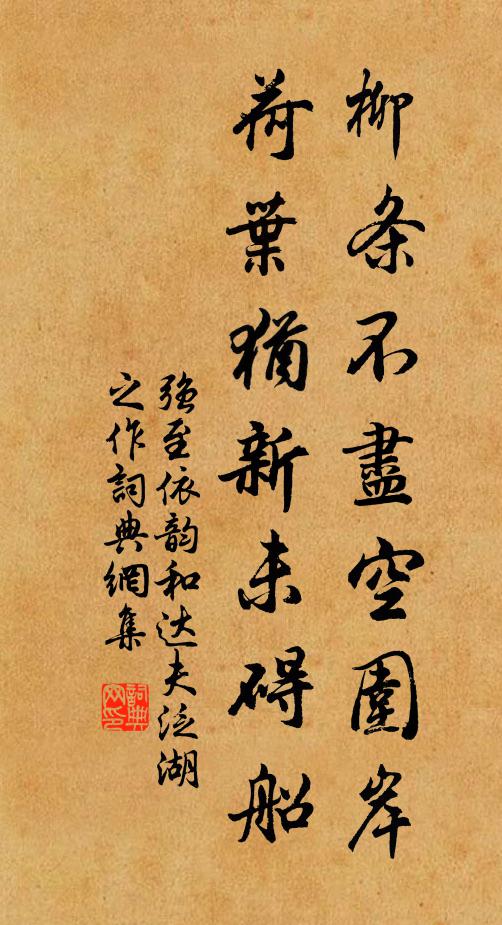 柳条不盡空圍岸
荷葉猶新未碍船
强至依韵和达夫泛湖
之作詞典網集
詞典
网印